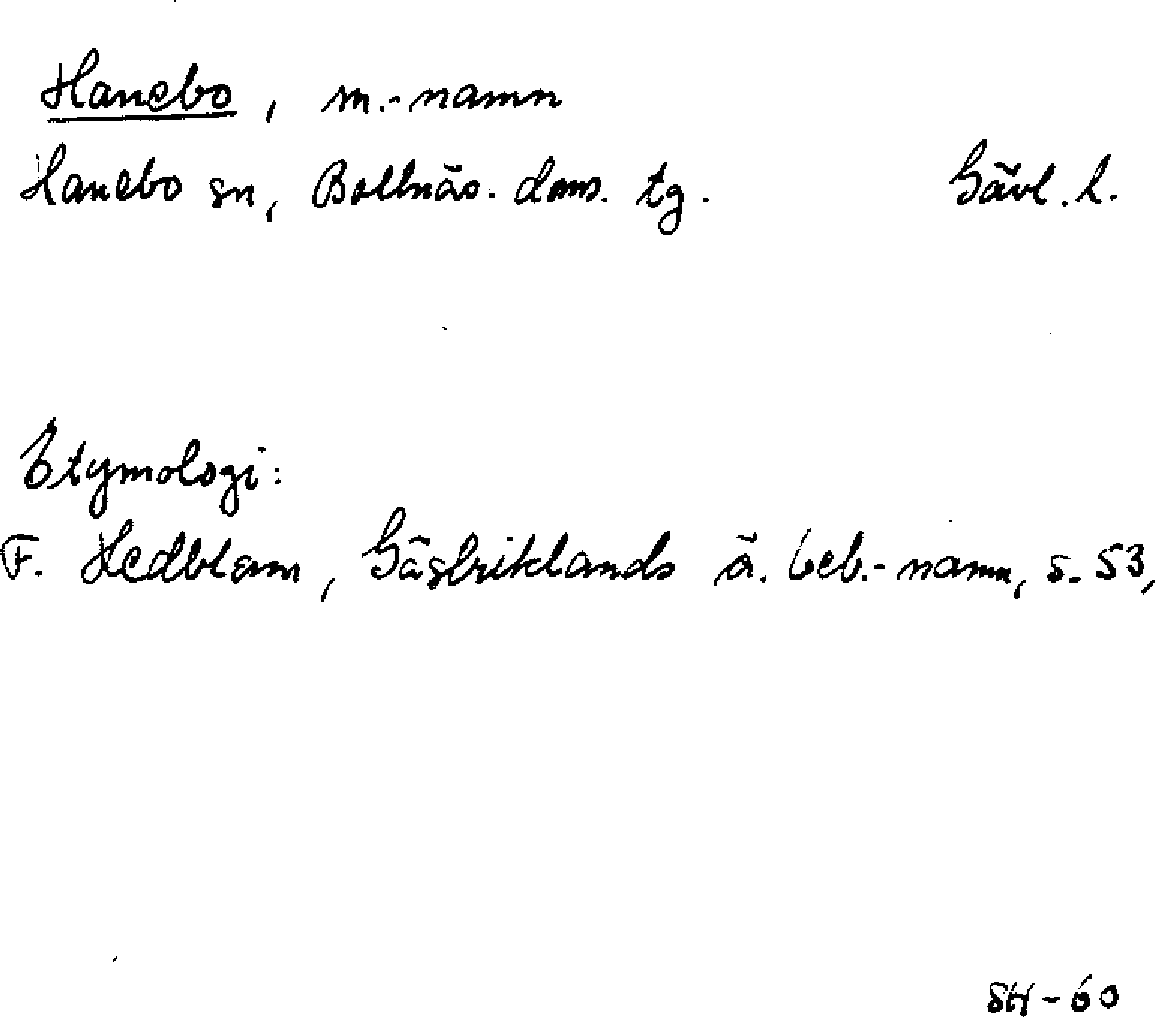 Hanebo, sn.-namn
Hanebo sn, Bollnäs. doms. tg. Gävl. l.
Etymologi:
F. Hedblom, Gästriklands ä. beb.-namn, s. 53,
SH-60